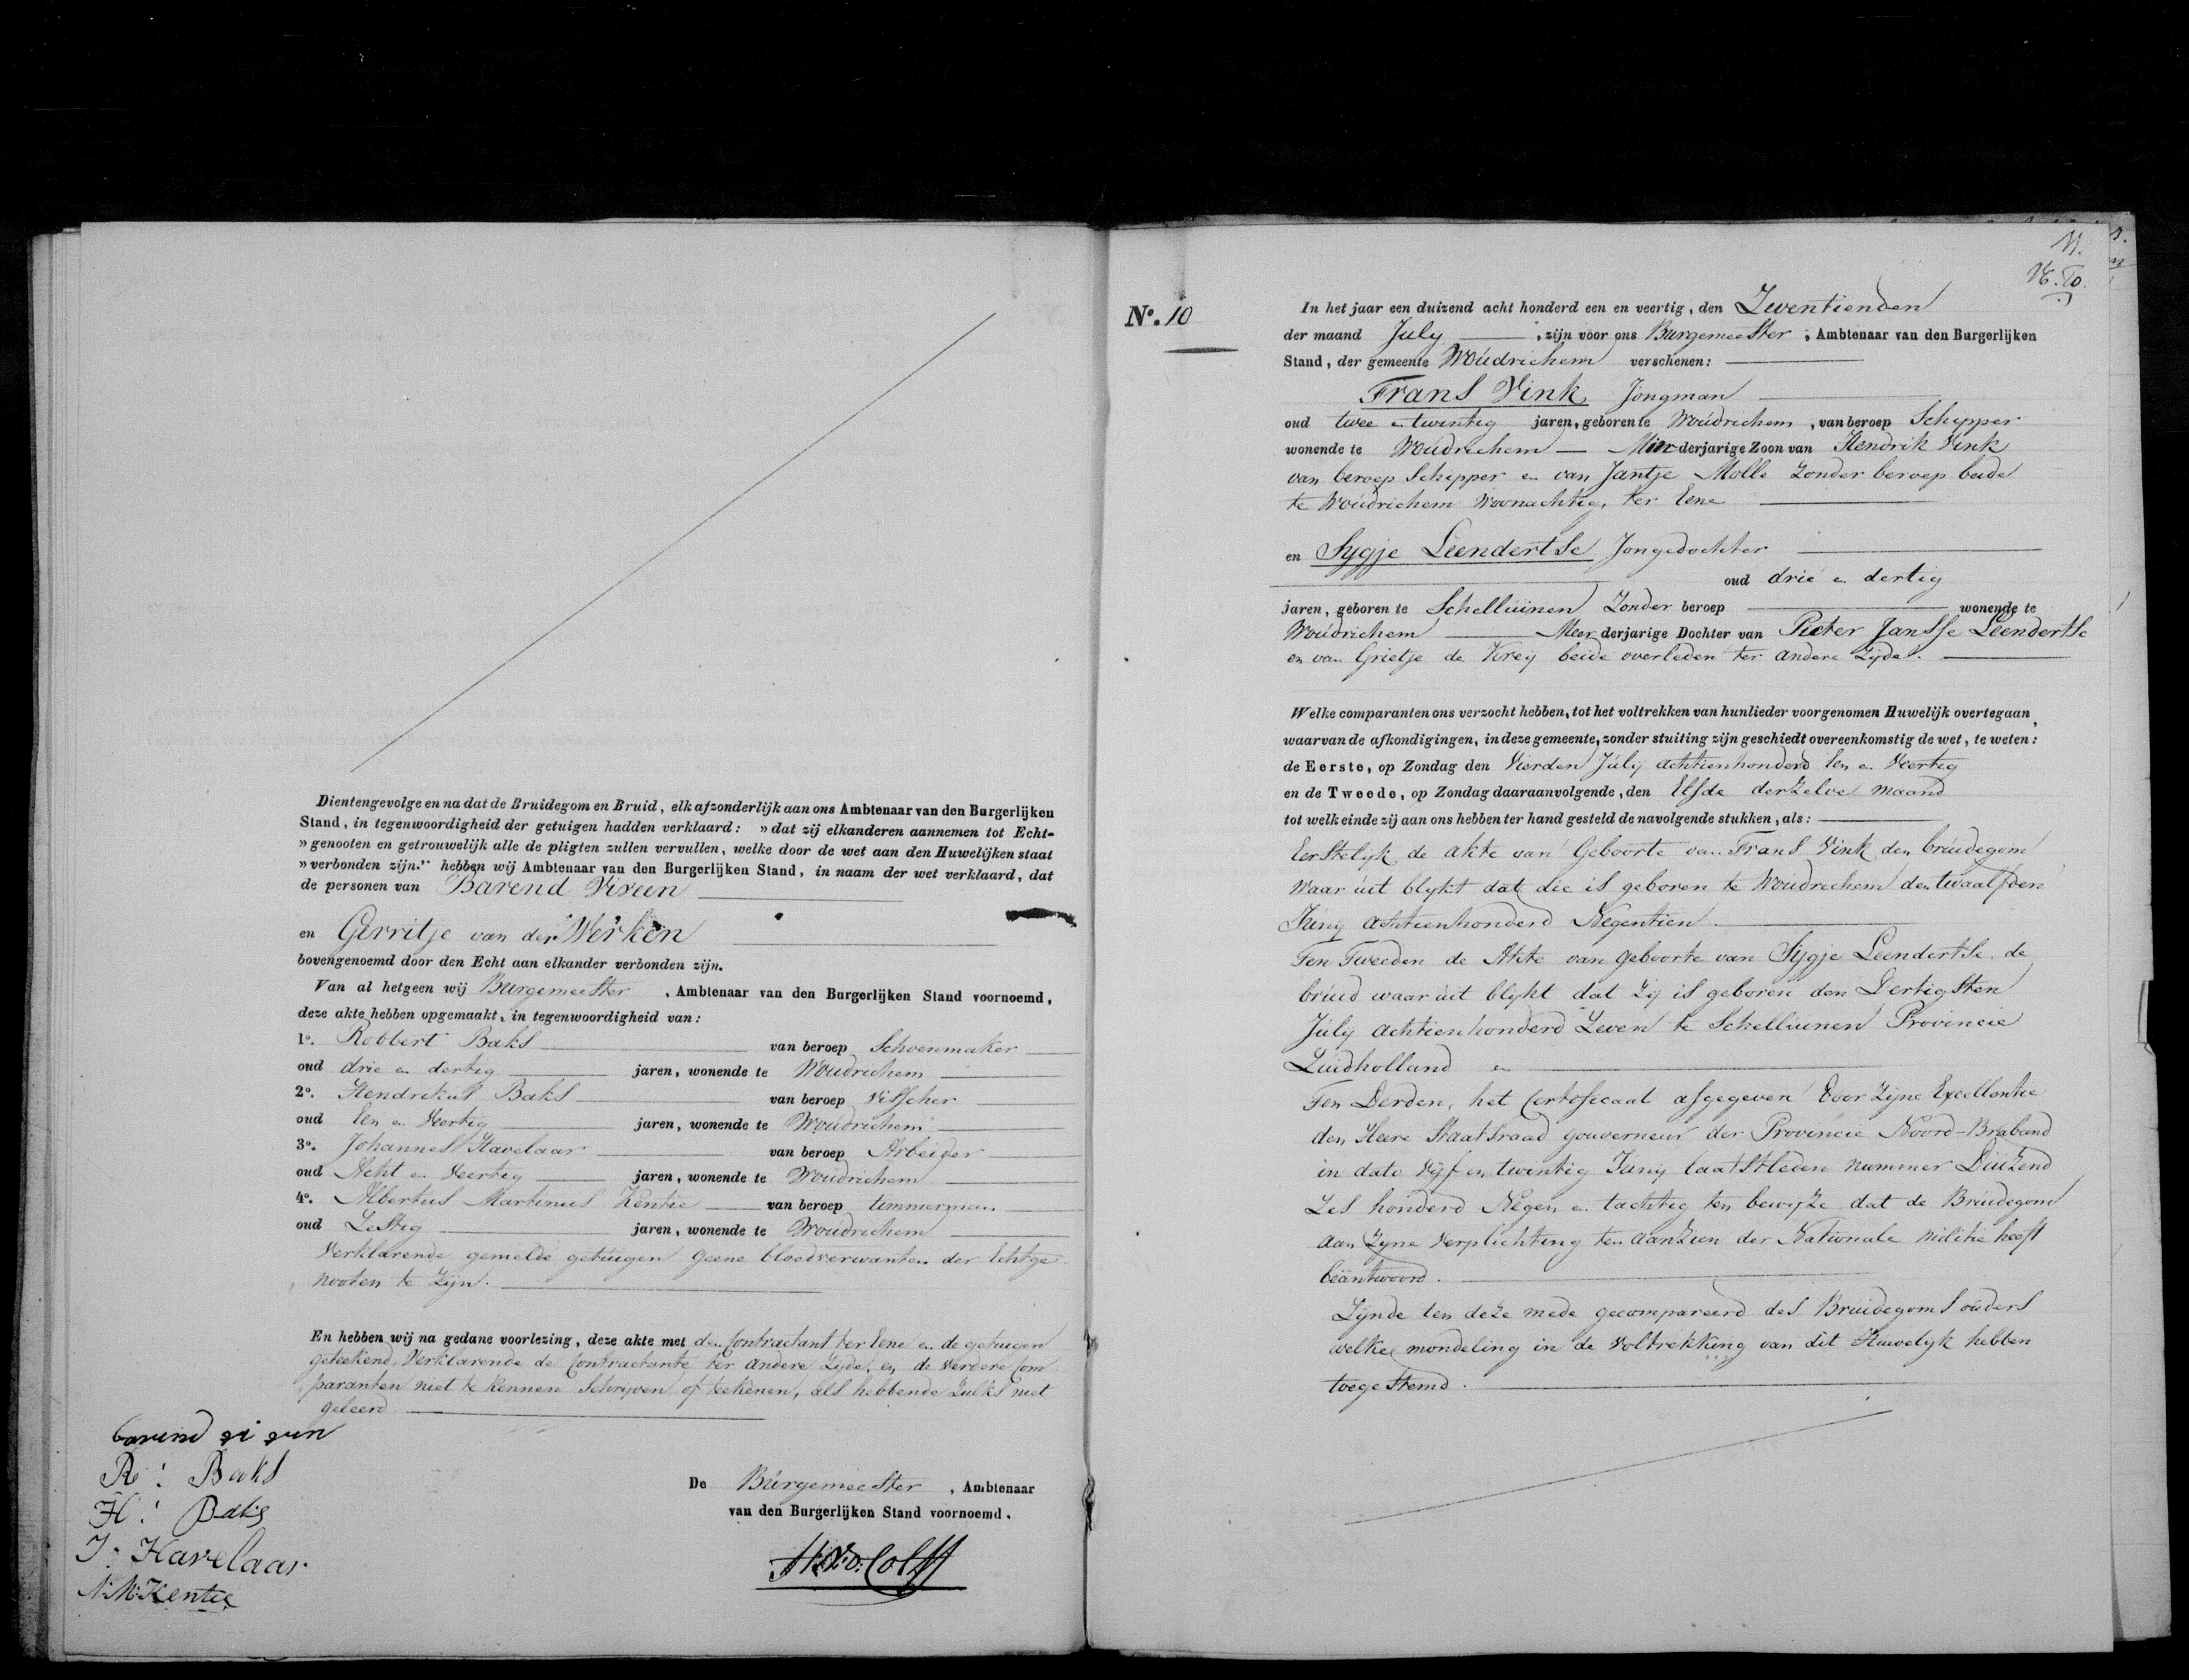 Dientengevolge en na dat de Bruidegom en Bruid, elk afzonderlijk aan ons Ambtenaar van den Burgerlijken
Stand, in tegenwoordigheid der getuigen hadden verklaard: »dat zij elkanderen aannemen tot Echt-
»genooten en getrouwelijk alle de pligten zullen vervullen, welke door de wet aan den Huwelijken staat
»verbonden zijn." hebben wij Ambtenaar van den Burgerlijken Stand, in naam der wet verklaard, dat
de personen van Barend Vireen
en Gerritje van der Werken
bovengenoemd door den Echt aan elkander verbonden zijn.
Van al hetgeen wij Burgemeester, Ambtenaar van den Burgerlijken Stand voornoemd,
deze akte hebben opgemaakt, in tegenwoordigheid van:
1o. Robbert Baks van beroep Schoenmaker
oud drie en dertig jaren, wonende te Woúdrichem
2o. Hendrikus Baks van beroep Visscher
oud Een en Veertig jaren, wonende te Woúdrichem
3o. Johannes Havelaar van beroep Arbeider
oud Acht en Veertig jaren, wonende te Woúdrichem
4o. Albertus Martinus Kentie van beroep timmerman
oud Zestig jaren, wonende te Woudrichem
Verklarende gemelde getúigen geene bloedverwanten der Echtge
nooten te Zijn.
En hebben wij na gedane voorlezing, deze akte met den Contractant ter Eene en de getuigen
geteekend, Verklarende de Contractante ter andere Zijde, en de verdere Com
paranten niet te kennen Schrijven of teekenen, als hebbende Zulks niet
geleerd
R: Baks
H: Baks
J: Havelaar
A:M:Kentie
De Búrgemeester, Ambtenaar
van den Burgerlijken Stand voornoemd.
No. 10
In het jaar een duizend acht honderd een en veertig, den Zeventienden
der maand July, zijn voor ons Burgemeester, Ambtenaar van den Burgerlijken
Stand, der gemeente Woúdrichem verschenen:
Frans Vink, Jongman
oud twee en twintig jaren, geboren te Woúdrichem, van beroep Schipper
wonende te Woudrichem Minderjarige Zoon van Hendrik Vink
van beroep Schipper en van Jantje Molle Zonder beroep beide
te Woúdrichem Woonachtig, ter Eene
en Sygje Leendertse Jongedochter
oud drie en dertig
jaren, geboren te Schellúinen Zonder beroep wonende te
Woúdrichem Meerderjarige Dochter van Pieter Jansse Leendertse
en van Grietje de Vreij beide overleden ter andere Zijde.
Welke comparanten ons verzocht hebben, tot het voltrekken van hunlieder voorgenomen Huwelijk overtegaan,
waarvan de afkondigingen, in deze gemeente, zonder stuiting zijn geschiedt overeenkomstig de wet, te weten:
de Eerste, op Zondag den Vierden Júlij achttienhonderd Een en Veertig
en de Tweede, op Zondag daaraanvolgende, den Elfde derzelve maand
tot welk einde zij aan ons hebben ter hand gesteld de navolgende stukken, als:
Eerstelyk de akte van Geboorte van Frans Vink den brúidegom
Waar úit blykt dat die is geboren te Woúdrichem den twaalfden
Júnij achttienhonderd Negentien
Ten Tweeden de Akte van geboorte van Sygje Leendertse de
brúid waar uit blykt dat Zij is geboren den Dertigsten
Júly achttienhonderd Zeven te Schellúinen Provincie
Zúidholland en
Ten Derden, het Certoficaat afgegeven Door Zijne Excellentie
den Heere Staatsraad Gouverneur der Provincie Noord-Braband
in dato Vyf en twentig Júny laatstleden nummer Dúizend
Zes honderd Negen en tachtig ten bewijze dat de Brúidegom
aan Zyne Verplichting ten aanzien der Nationale militie heeft
beäntwoord.
Zijnde ten deze mede gecompareerd des Brúidegoms oúders
welke mondeling in de Voltrekking van dit Húwelyk hebben
toegestemd.